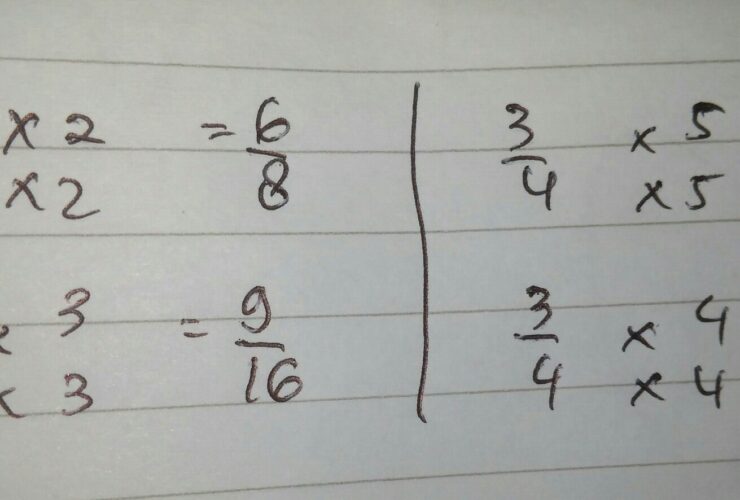 × 2 = 6/8 | 3/4 × 5
× 2 × 5
× 3 = 9/16 | 3/4 × 4
× 3 × 4